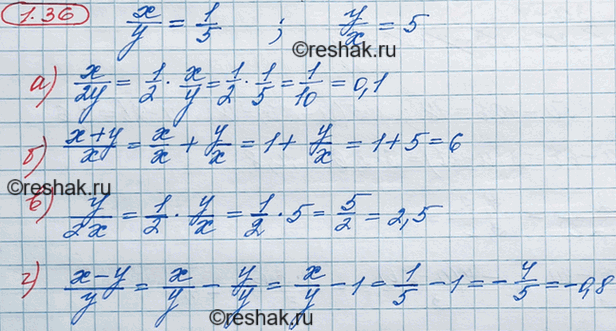 1.36 x/y = 1/5 ; y/x = 5
©reshak.ru
а) x/2y = 1/2 · x/y = 1/2 · 1/5 = 1/10 = 0,1
б) x+y/x = x/x + y/x = 1 + y/x = 1 + 5 = 6
©reshak.ru
в) y/2x = 1/2 · y/x = 1/2 · 5 = 5/2 = 2,5
г) x-y/y = x/y - y/y = x/y - 1 = 1/5 - 1 = -4/5 = -0,8
©reshak.ru